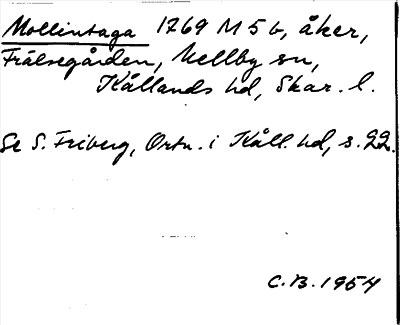 Mollintaga 1769 M 5 b, åker,
Frälsegården, Mellby sn,
Kållands hd, Skar. l.
Se S. Friberg, Ortn. i Kåll. hd, s. 22.
C.B. 1954